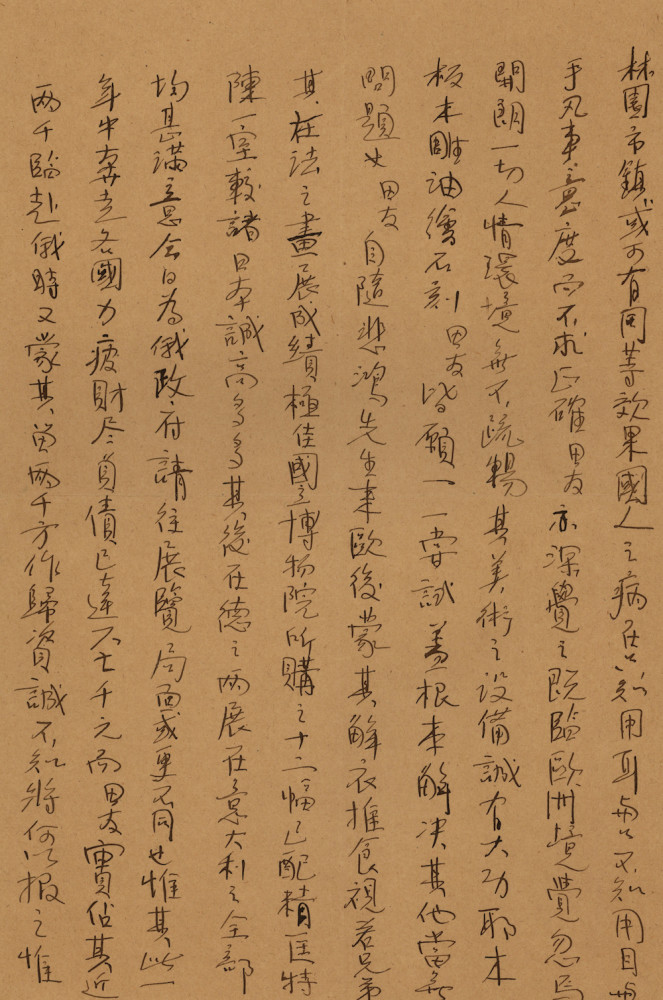 林園市鎮或可有同等效果國人之病在只知用耳與不知用目與
手凡事意度而不求正確田友亦深覺之既臨歐洲境覺忽焉
開朗一切人情環境無不疏暢其美術之設備誠有大功耶木
板木雕油繪石刻田友皆願一一嘗試善根本解決其他當無
問題也田友自隨悲鴻先生來歐後蒙其解衣推食視若兄弟
其在法之畫展成績極佳國立博物院所購之十二幅已配精匡特
陳一室較諸日本誠高多多其後在德之兩展在意大利之全部
均甚滿意今日為俄政府請往展覽局面或更不同也惟其此一
年中奔走各國力疲財尽負債已達六七千元而田友實佔其近
兩千臨赴俄時又蒙其留兩千方作歸資誠不知將何以報之惟